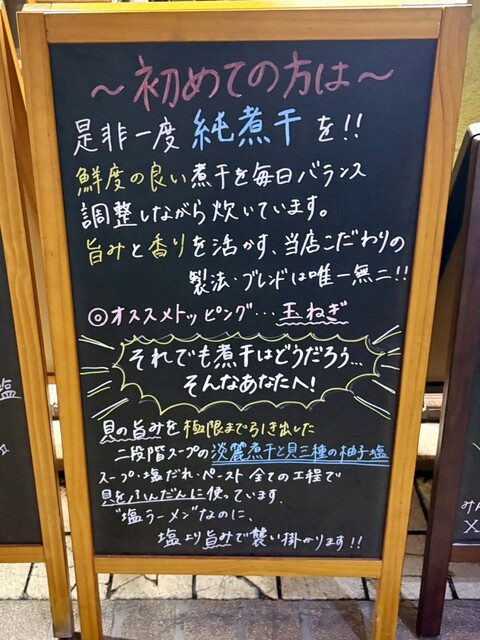 ～初めての方は～
是非一度 純煮干を!!
鮮度の良い煮干を毎日バランス
調整しながら炊いています。
旨みと香りを活かす、当店こだわりの
製法・ブレンドは唯一無二!!
◎オススメトッピング…玉ねぎ
それでも煮干はどうだろう…
そんなあなたへ!
貝の旨みを極限まで引き出した
二段階スープの淡麗煮干と貝三種の柚子塩
スープ・塩だれ・ペースト 全ての工程で
貝をふんだんに使っています.
"塩ラーメン"なのに、
塩より旨みで襲い掛かります!!
塩